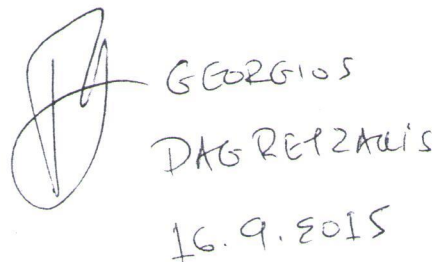 GEORGIOS
DAGRETZAKIS
16.9.2015